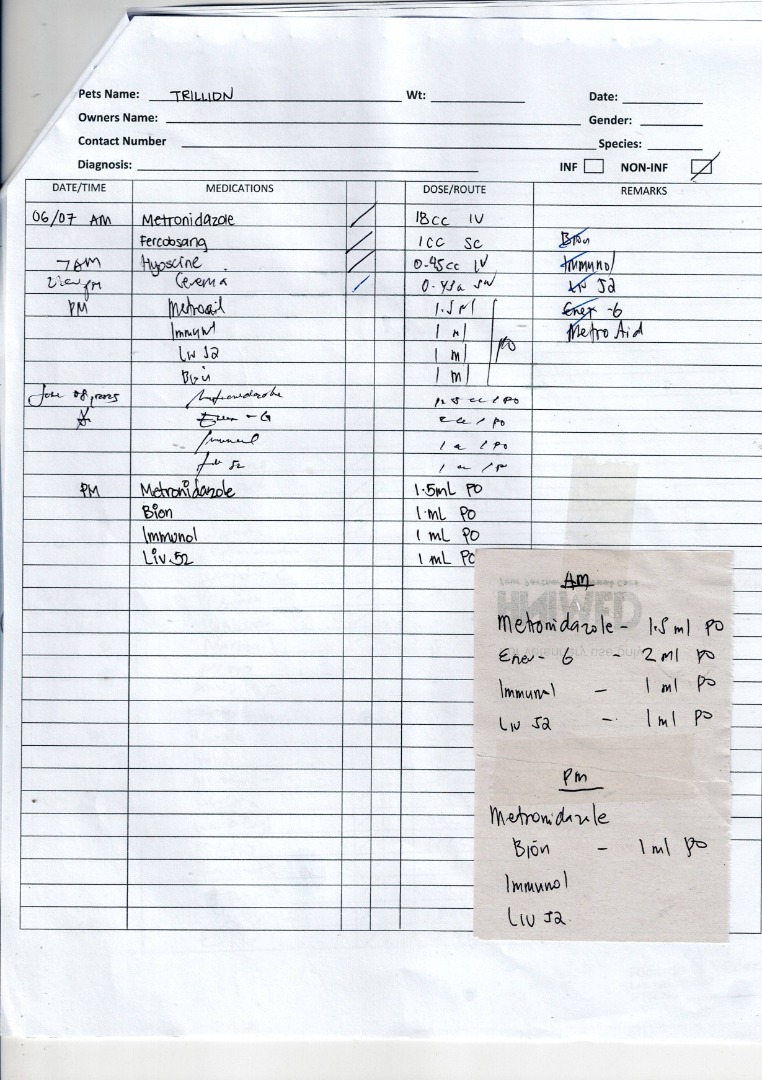 Pets Name: TRILLION Wt: Date:
Owners Name: Gender:
Contact Number Species:
Diagnosis: INF NON-INF
DATE/TIME MEDICATIONS DOSE/ROUTE REMARKS
06/07 AM Metronidazole 18cc IV
Fercobsang 1cc SC Bion
7AM Hyoscine 0.45cc IV Immunol
Cerenia Liv 52
PM 1.5ml Ener-G
Immunol 1 ml Metro Aid
Liv 52 1 ml PO
Bion 1 ml
June 08, 2025 Metronidazole 1.5 cc / PO
Ener-G 2cc / PO
Immunol 1 cc / PO
Liv 52 1 cc / PO
PM Metronidazole 1.5mL PO
Bion 1 mL PO
Immunol 1 mL PO
Liv.52 1 mL PO
AM
Metronidazole - 1.5 ml PO
Ener-G - 2 ml PO
Immunol - 1 ml PO
Liv 52 - 1 ml PO
PM
Metronidazole
Bion - 1 ml PO
Immunol
Liv 52